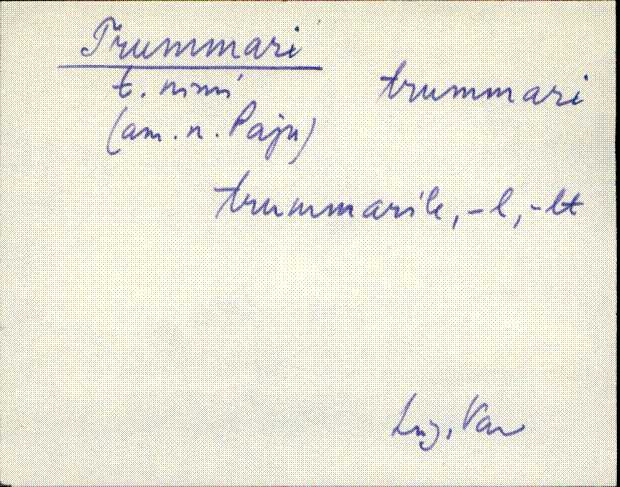 Trummari
t. nimi trummari
(am. n. Paju)
trummarile, -l, -lt
Lüg. Var